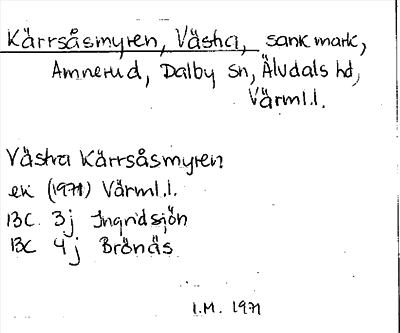 Kärrsåsmyren, Västra, sank mark,
Amnerud, Dalby sn, Älvdals hd,
Värml.l.
Västra Kärrsåsmyren
ek (1971) Värml.l.
13C 3j Ingridsjön
13C 4j Brönäs
I.M. 1971